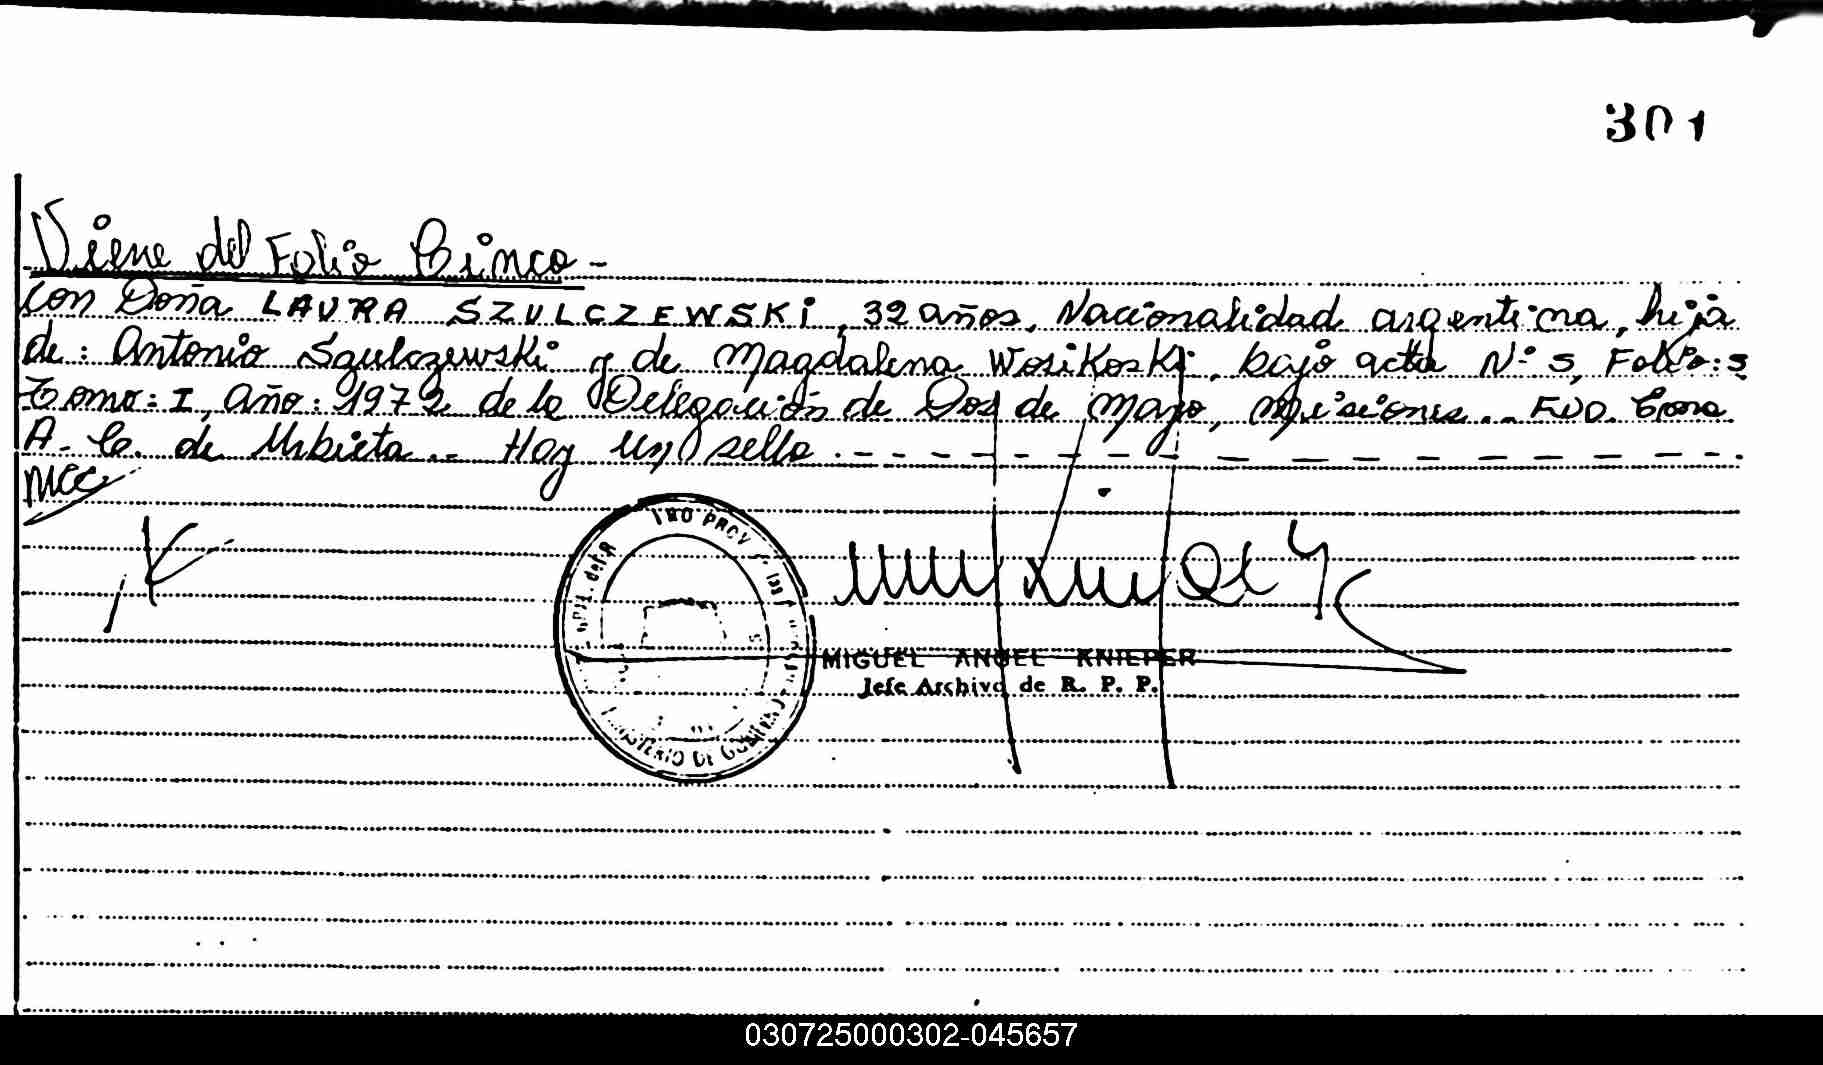 301
Viene del Folio Cinco -
Con Doña LAURA SZULCZEWSKI, 32 años, Nacionalidad argentina, hija
de: Antonio Szulczewski y de Magdalena Wosikoski, bajo acta Nº 5, Folio: 5
Tomo: I, Año: 1972 de la Delegación de Dos de Mayo, Misiones.. FDO.
A. C. de Urbieta.. Hay un sello . - - - - - - - - - - - - - - - - - .
MCC
MIGUEL ANGEL KNIEPER
Jefe Archivo de R. P. P.
030725000302-045657